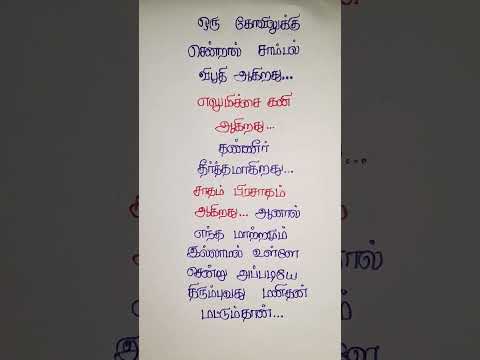 ஒரு கோவிலுக்கு
சென்றால் சாம்பல்
விபூதி ஆகிறது...
எலுமிச்சை கனி
ஆகிறது...
தண்ணீர்
தீர்த்தமாகிறது...
சாதம் பிரசாதம்
ஆகிறது... ஆனால்
எந்த மாற்றமும்
இல்லாமல் உள்ளே
சென்று அப்படியே
திரும்புவது மனிதன்
மட்டும்தான்...